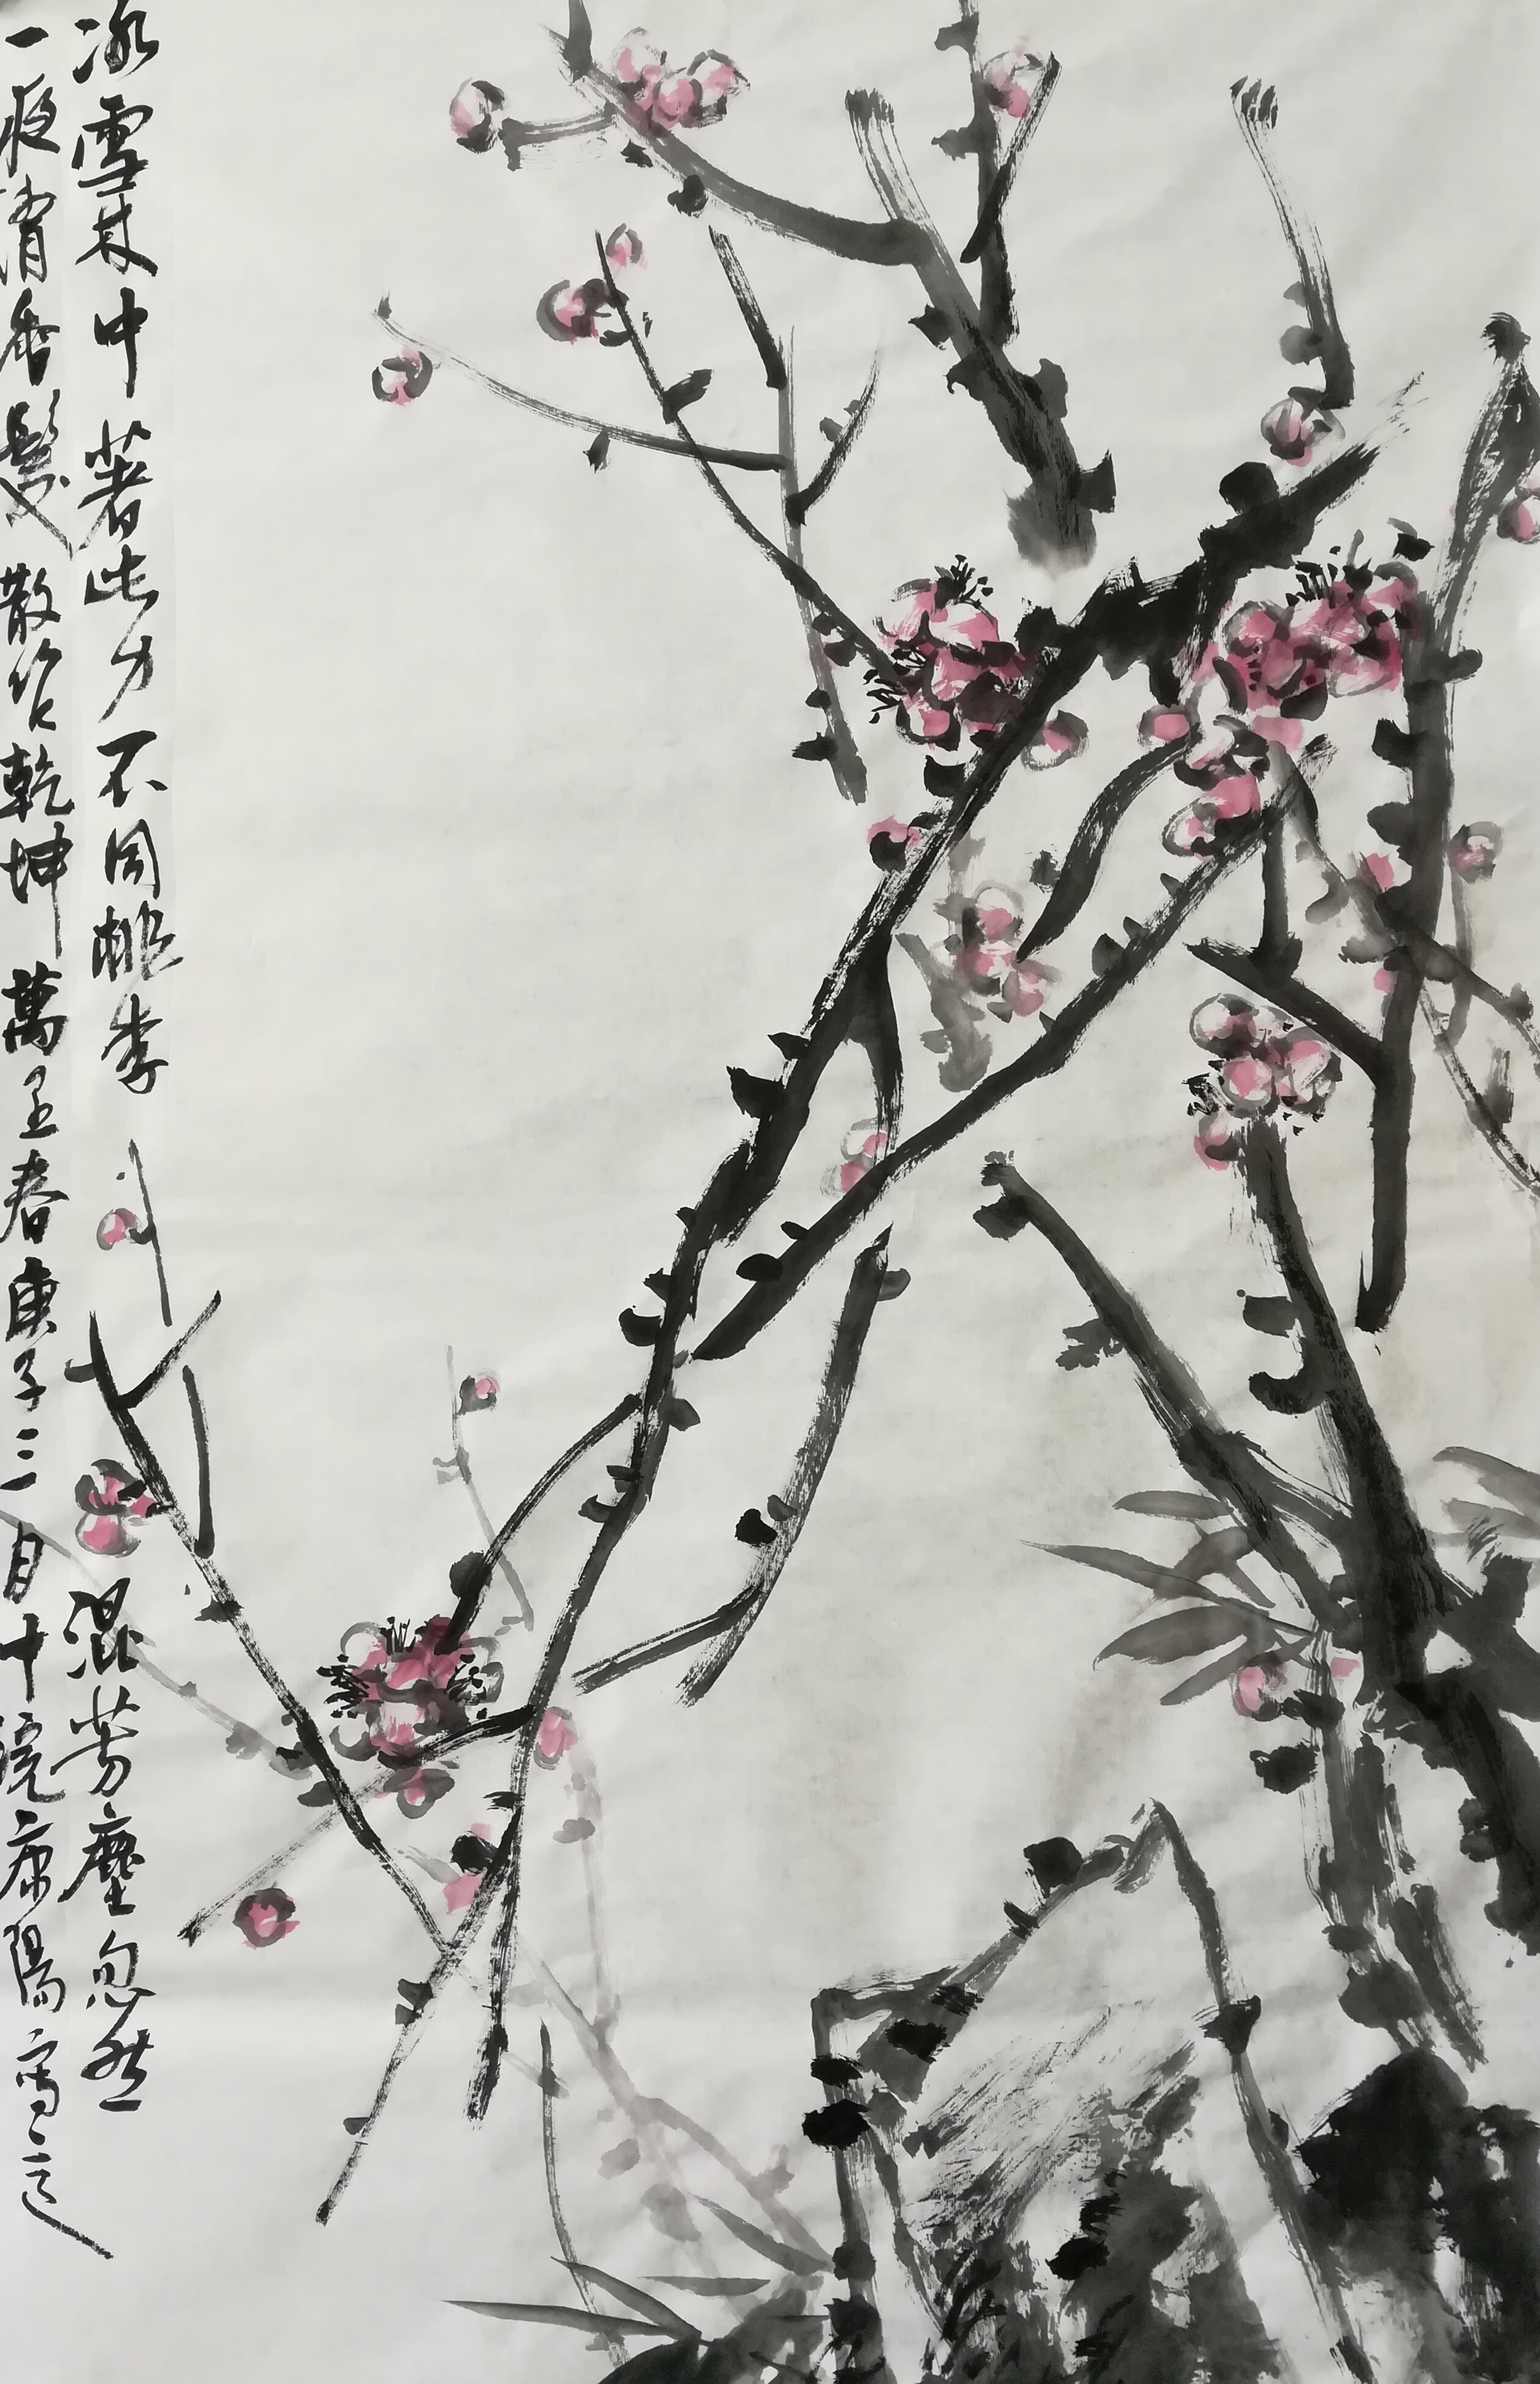 冰雪林中著此身不同桃李混芳塵忽然
一夜清香發散作乾坤萬里春庚子三月中浣康陽寫之